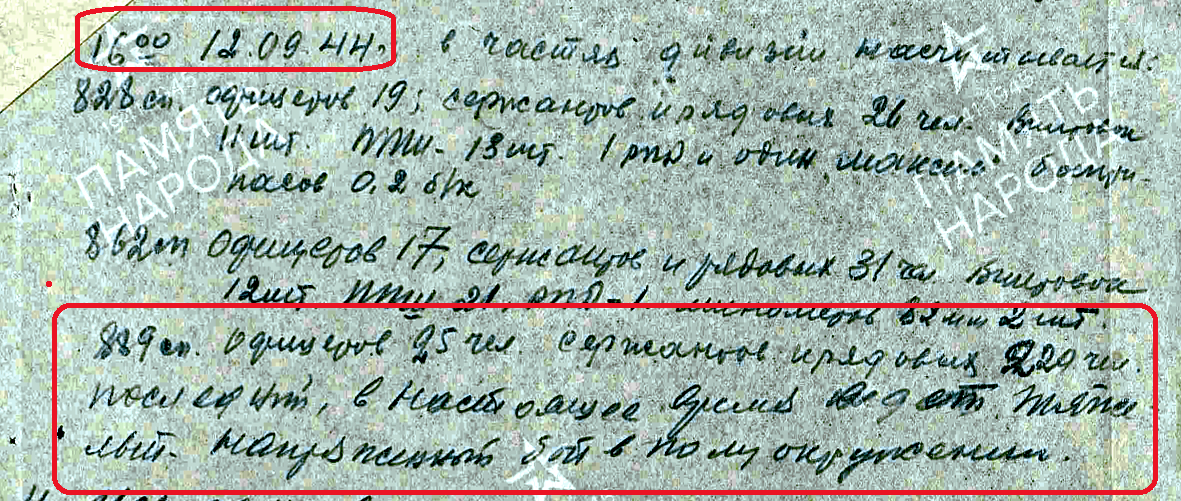 16⁰⁰ 12.09.44г. в частях дивизии насчитывается:
828 сп. офицеров 19; сержантов и рядовых 26 чел. Винтовок
11 шт. ППШ - 13 шт. 1 РПД и один "максим" боепри-
пасов 0,2 б/к
862 сп офицеров 17, сержантов и рядовых 31 чел Винтовок
12 шт ППШ 21, РПД - 1 минометов 82 мм 2 шт.
889 сп. офицеров 25 чел. сержантов и рядовых 229 чел.
последний, в настоящее время ведет тяже-
лый напряженный бой в полуокружении.
ПАМЯТЬ
НАРОДА
ПАМЯТЬ
НАРОДА